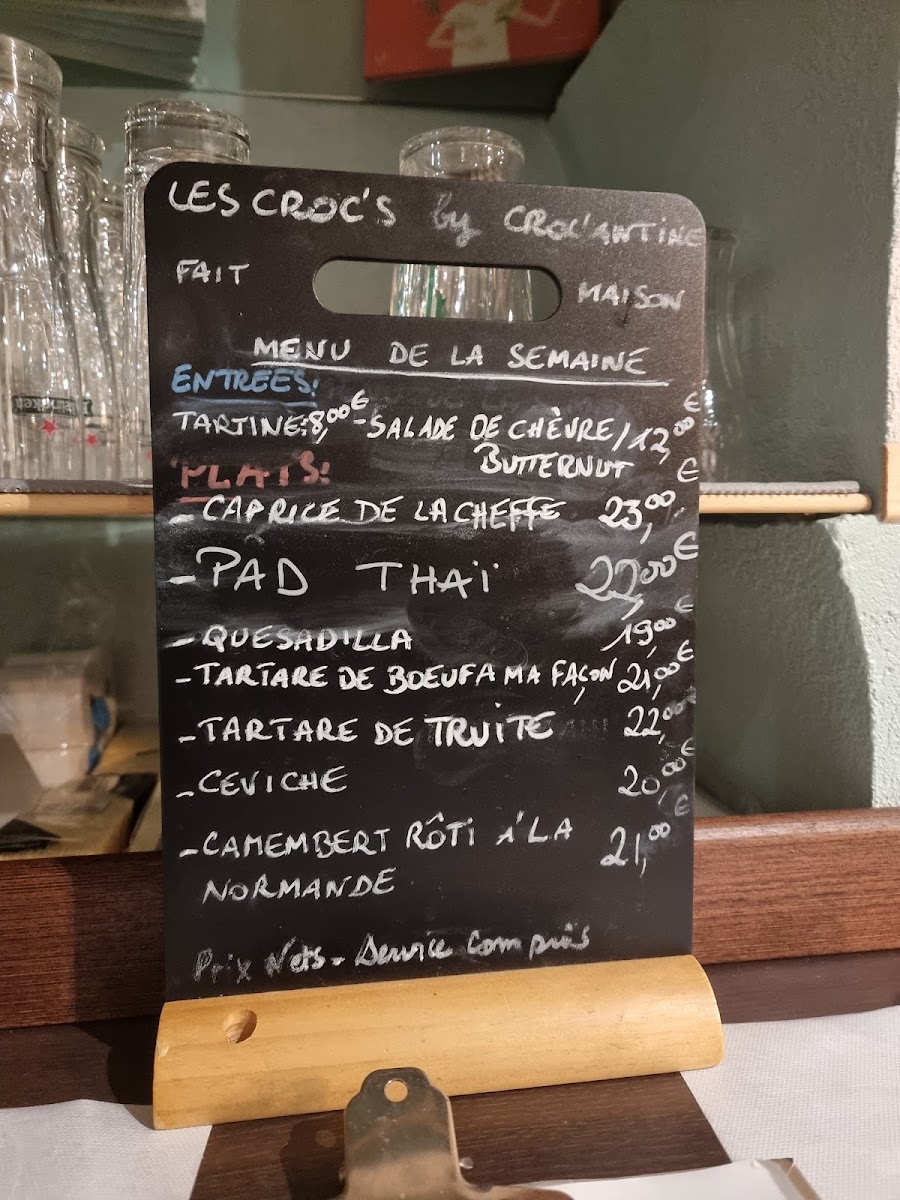 LES CROC'S by CROC'ANTINE
FAIT MAISON
MENU DE LA SEMAINE
ENTREES:
TARTINE: 8,00€ - SALADE DE CHÈVRE / 12,00€
BUTTERNUT
PLATS:
- CAPRICE DE LA CHEFFE 23,00€
- PAD THAÏ 22,00€
- QUESADILLA 19,00€
- TARTARE DE BOEUF A MA FAÇON 21,00€
- TARTARE DE TRUITE 22,00€
- CEVICHE 20,00€
- CAMEMBERT RÔTI À LA 21,00€
NORMANDE
Prix Nets - Service Compris